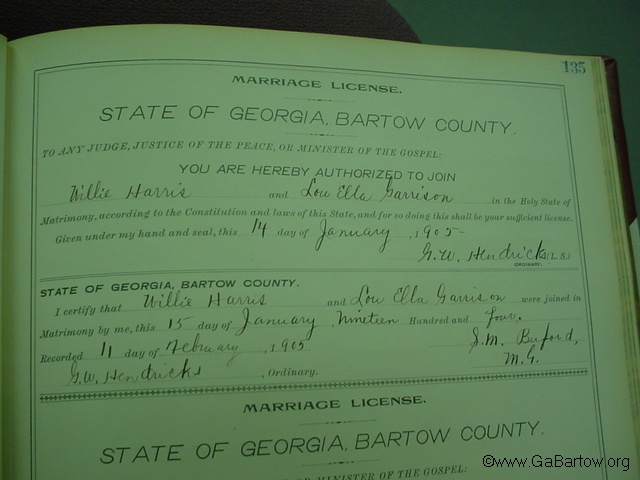 135
MARRIAGE LICENSE.
STATE OF GEORGIA, BARTOW COUNTY.
TO ANY JUDGE, JUSTICE OF THE PEACE, OR MINISTER OF THE GOSPEL:
YOU ARE HEREBY AUTHORIZED TO JOIN
Willie Harris and Lou Ella Garrison in the Holy State of
Matrimony, according to the Constitution and laws of this State, and for so doing this shall be your sufficient license.
Given under my hand and seal, this 14 day of January, 1905
G.W. Hendricks (L.S.)
ORDINARY.
STATE OF GEORGIA, BARTOW COUNTY.
I certify that Willie Harris and Lou Ella Garrison were joined in
Matrimony by me, this 15 day of January, Nineteen Hundred and four.
Recorded 11 day of February, 1905 J.M. Buford,
G.W. Hendricks, Ordinary. M.G.
MARRIAGE LICENSE.
STATE OF GEORGIA, BARTOW COUNTY.
OR MINISTER OF THE GOSPEL:
©www.GaBartow.org